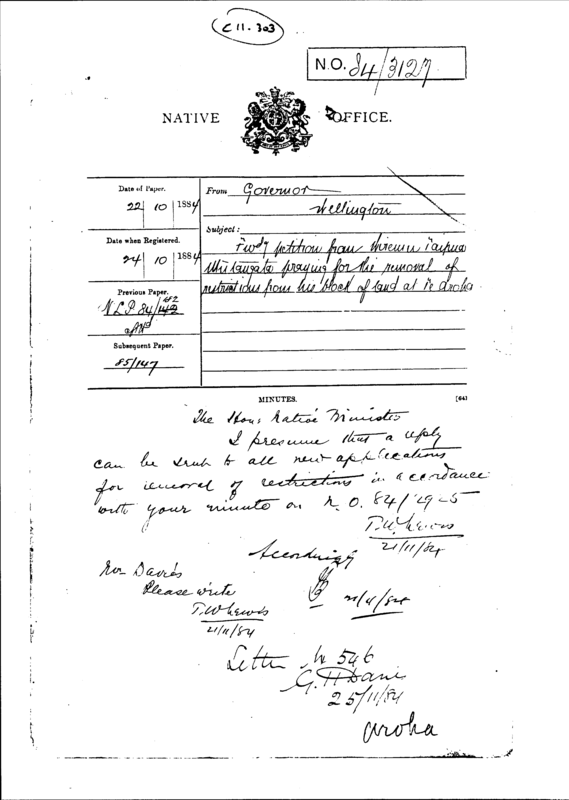 C 11. 303
N.O. 84/3127
NATIVE OFFICE.
Date of Paper.
22 10 1884
Date when Registered.
24 10 1884
Previous Paper.
NLP 84/
Subsequent Paper.
85/147
From Governor
Wellington
Subject:
Fwdg petition from Wiremu
praying for the removal of
restrictions from his block of land at Te Aroha
MINUTES.
[64]
The Hon. Native Minister
I presume that a reply
can be sent to all new applications
for removal of restrictions in accordance
with your minute on N.O. 84/2925
T.W. Lewis
21/11/84
Accordingly
21/11/84
Mr Davies
Please write
T W Lewis
21/11/84
Letter No 546
G. H Davies
25/11/84
Aroha